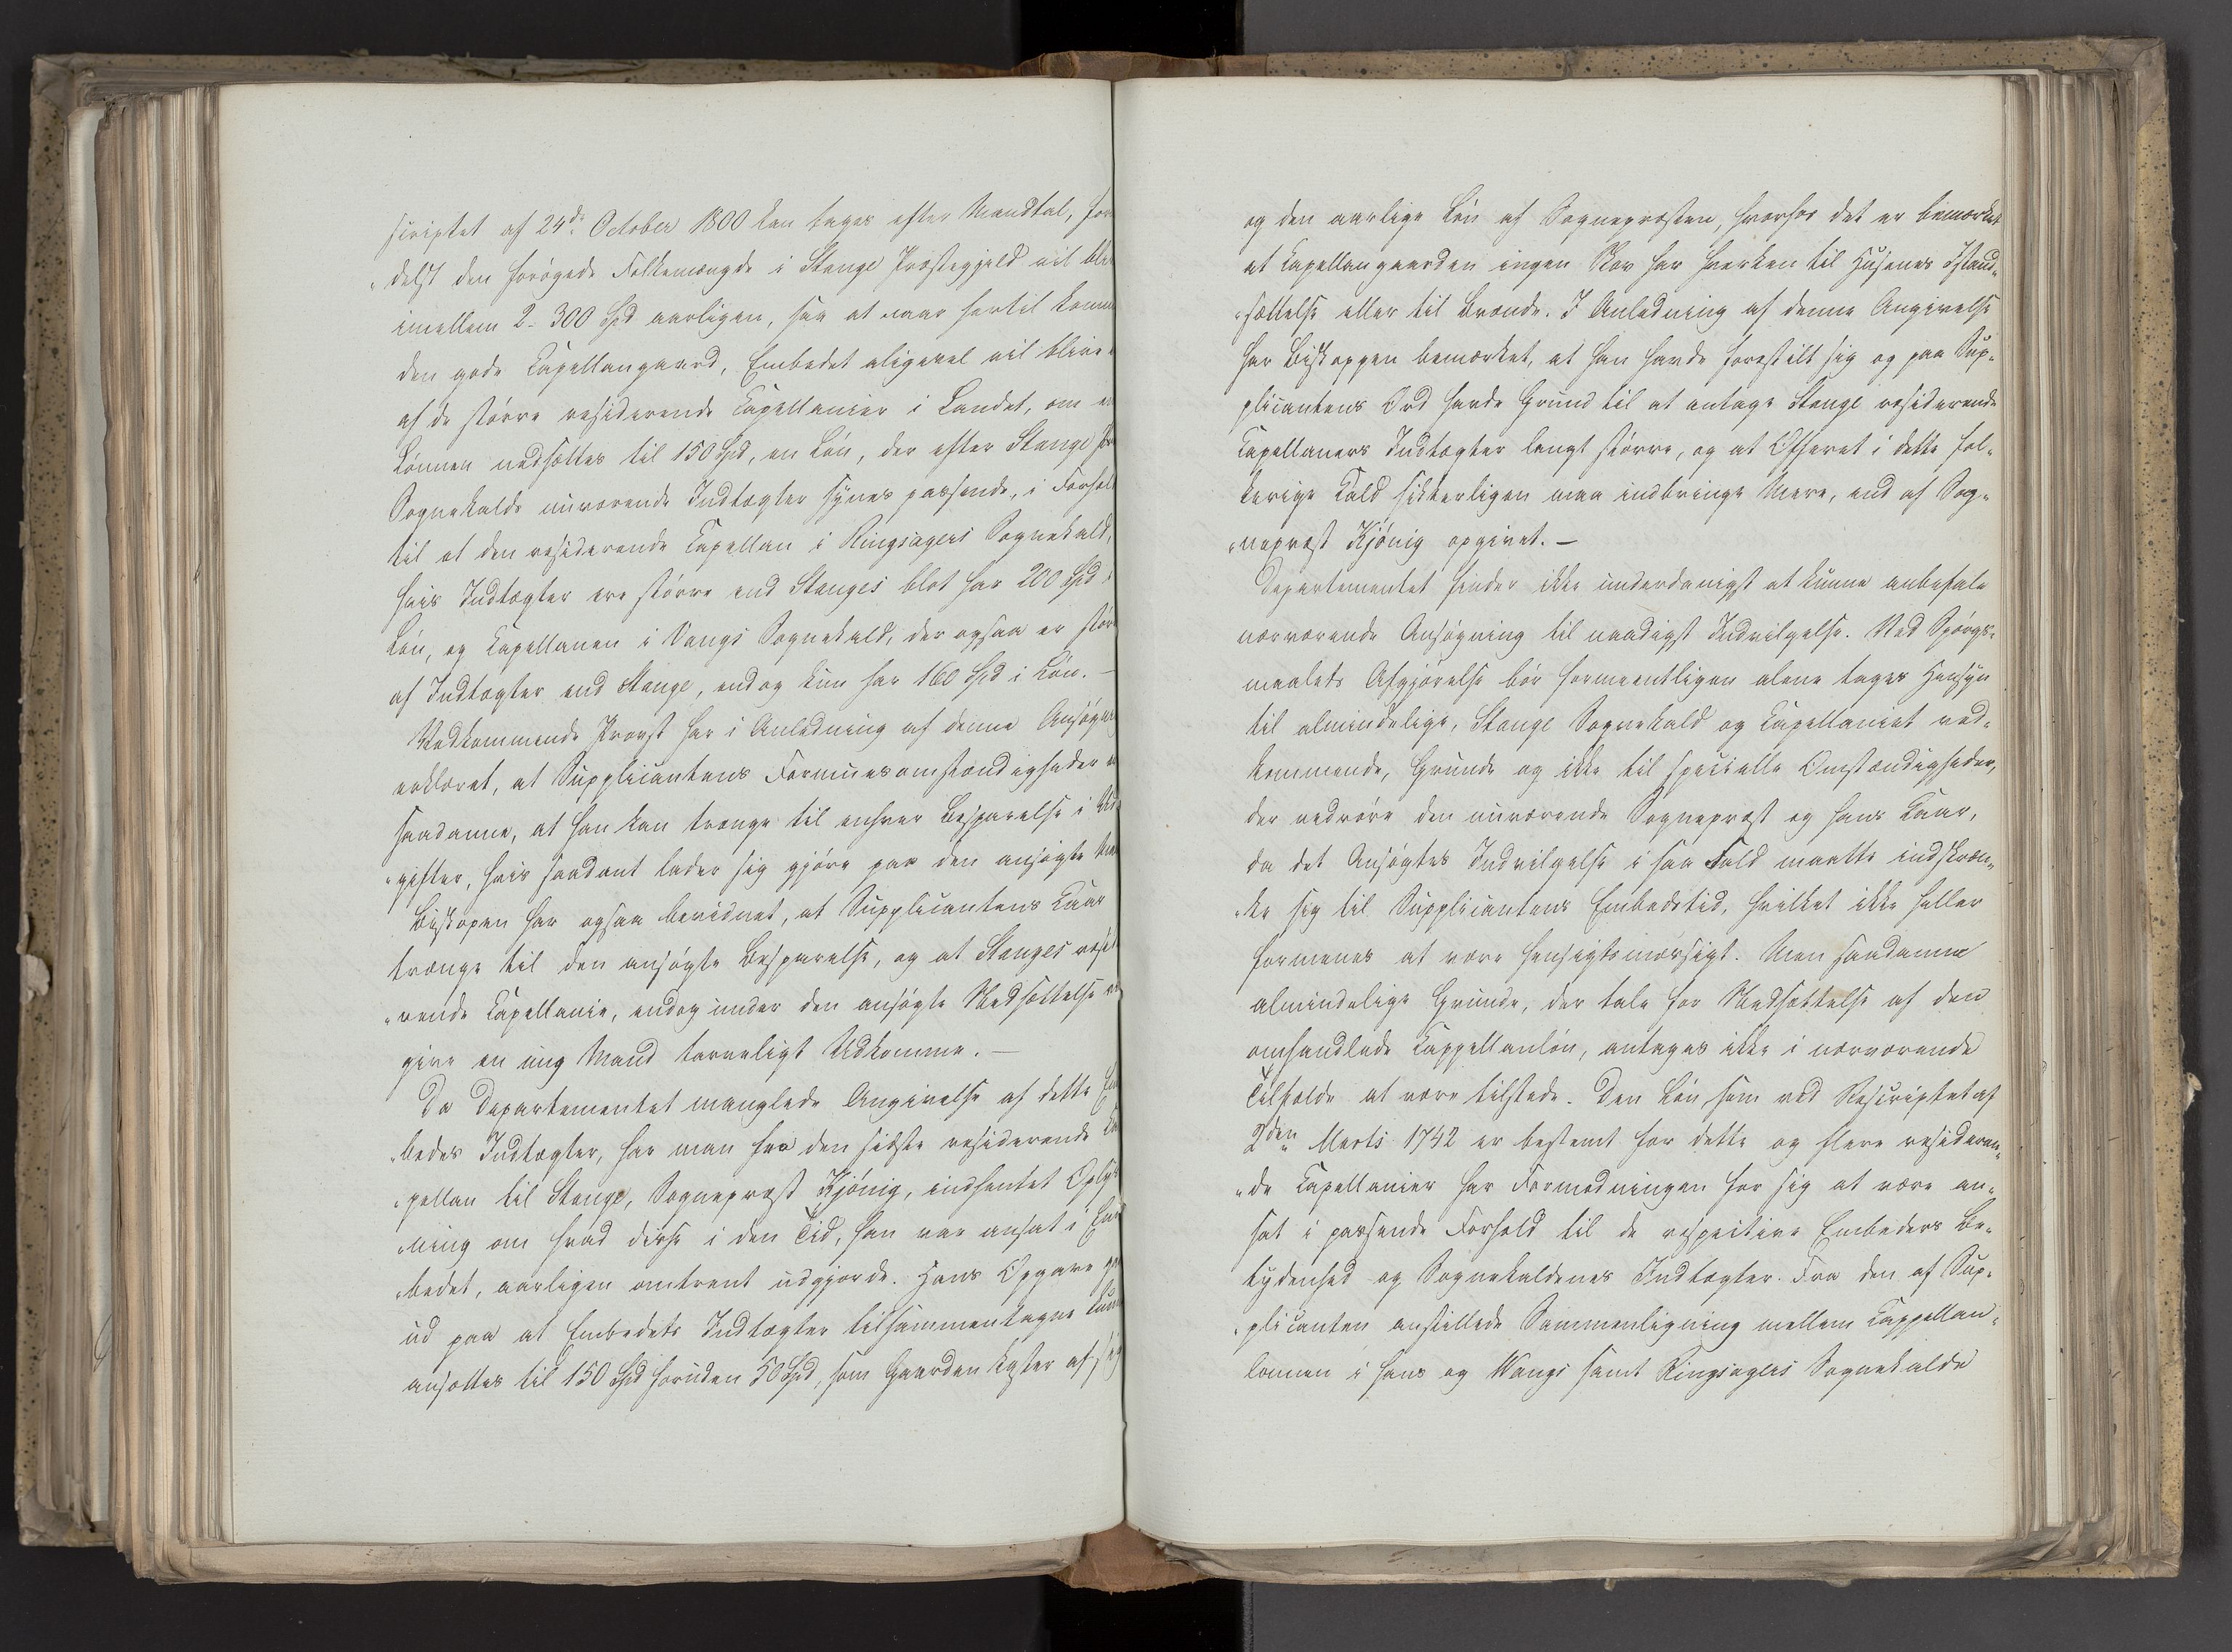 scriptet af 24d: October 1800 kan tages efter Mandtal, for
„delst den forøgede Folkemængde i Stange Præstegjeld vil bli
imellem 2- 300 Spd aarligen, saa at naar hertil komm
den gode Capellangaard, Embedet aligevel vil blive
af de større residerende Capellanier i Landet, om
Lønnen nedsættes til 150 Spd, en Løn, der efter Stange
Sognekalds nuværende Indtægter synes passende, i Forhol
til at den residerende Capellan i Ringsagers Sognekald,
hvis Indtægter ere større end Stanges blot har 200 Spd i
Løn, og Capellanen i Vangs Sognekald, der ogsaa er stør
af Indtægter end Stange, endog kun har 160 Spd i Løn. —
Vedkommende Provst har i Anledning af denne Ansøgn
erklæret, at Supplicantens Formuesomstændigheder
saadanne, at han kan trænge til enhver Besparelse i Ud
„gifter, hvis saadant lader sig gjøre paa den ansøgte
Biskopen har ogsaa bevidnet, at Supplicantens Kaar
trænge til den ansøgte Besparelse, og at Stanges resid
„rende Capellanie, endog under den ansøgte Nedsættelse
give en ung Mand tarveligt Udkomme. —
Da Departementet manglede Angivelse af dette Em
„bedes Indtægter, har man fra den sidste residerende Ca
„pellan til Stange, Sognepræst Kjønig, indhentet Oplys
„ning om hvad disse i den Tid, han var ansat i Em
„bedet, aarligen omtrent udgjorde. Hans Opgave
ud paa at Embedets Indtægter tilsammentagne kun
ansættes til 150 Spd foruden 50 Spd, som Gaarden kaster af
og den aarlige Løn af Sognepræsten, hvorhos det er bemærket
at Capellangaarden ingen Skov har hverken til Husenes istand„
„sættelse eller til Brænde. I Anledning af denne Angivelse
har Biskoppen bemærket, at han havde forestilt sig og paa Sup„
plicantens Ord havde Grund til at antage Stange residerende
Capellaners Indtægter langt større, og at Offeret i dette fol„
kerige Kald sikkerligen maa indbringe mere, end af Sog„
„nepræst Kjønig opgivet. —
Departementet finder ikke underdanigst at kunne anbefale
nærværende Ansøgning til naadigst Indvilgelse. Ved Spørgs„
maalets Afgjørelse bør formeentligen alene tages Hensyn
til almindelige, Stange Sognekald og Capellaniet ved„
kommende, Grunde og ikke til specielle Omstændigheder,
der vedrøre den nuværende Sognepræst og hans Kaar,
da det Ansøgtes Indvilgelse i saa Fald maatte indskræn„
„ke sig til Supplicantens Embedstid, hvilket ikke heller
formenes at være hensigtsmæssigt. Men saadanne
almindelige Grunde, der tale for Nedsættelse af den
omhandlede Cappellanløn, antages ikke i nærværende
Tilfælde at være tilstede. Den Løn, som ved Rescriptet af
2den Marts 1742 er bestemt for dette og flere resideren„
„de Capellanier har Formodningen for sig at være an„
sat i passende Forhold til de respective Embeders Be„
tydenhed og Sognekaldenes Indtægter. Fra den af Sup„
„plicanten anstillede Sammenligning mellem Cappellan„
lønnen i hans og Wangs samt Ringsagers Sognekalde